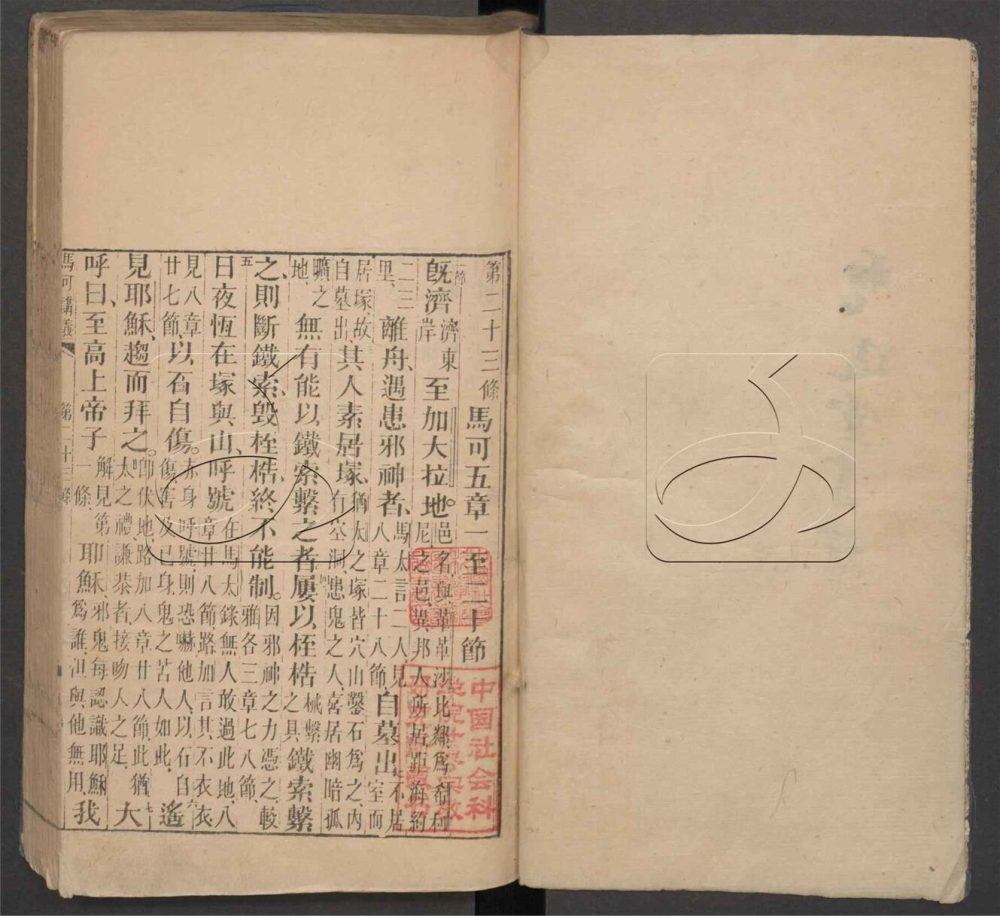 第二十三條 馬可五章一至二十節
既濟 濟東岸 至加大拉地 邑名與革革沙比鄰爲希利尼之邑異邦人所居距海約
二三里 離舟遇患邪神者 馬太言二人見八章二十八節 自墓出 不居室而
居塚故自墓出 其人素居塚 猶太之塚皆穴山鑿石爲之內有空洞患鬼之人喜居幽暗孤
曠之地 無有能以鐵索繫之者屢以桎梏 桃繫之具 鐵索繫
之則斷鐵索毀桎梏終不能制 因邪神之力憑之較雅各三章七八節
五 日夜恆在塚與山呼號 在馬太錄無人敢過此地八章廿八節路加言其不衣衣
見八章廿七節 以石自傷 赤身呼號則恐嚇他人以石自傷害及己身鬼之苦人如此 六 遙
見耶穌趨而拜之 卽伏地路加八章廿八節此猶太之禮謙恭者接吻人之足 七 大
呼曰至高上帝子 解見第一條 耶穌 邪鬼每認識耶穌爲誰 但與他無用 我
馬可講義 第二十三條
中国社会科